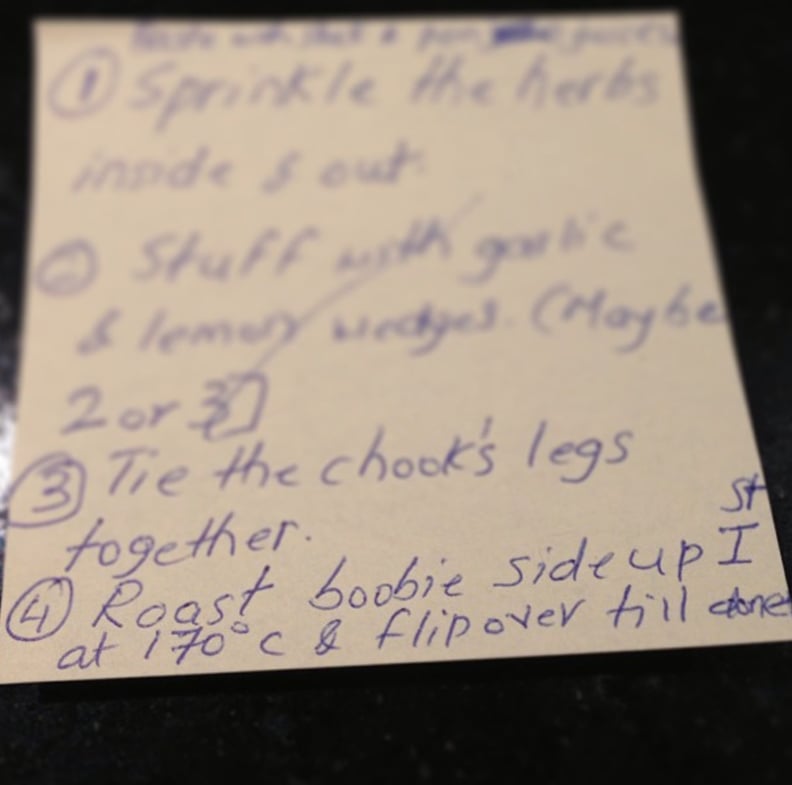 ① Sprinkle the herbs
inside & out.
② Stuff with garlic
& lemon wedges. (Maybe
2 or 3)
③ Tie the chook's legs
together.
St
④ Roast boobie side up I
at 170°c & flip over till done